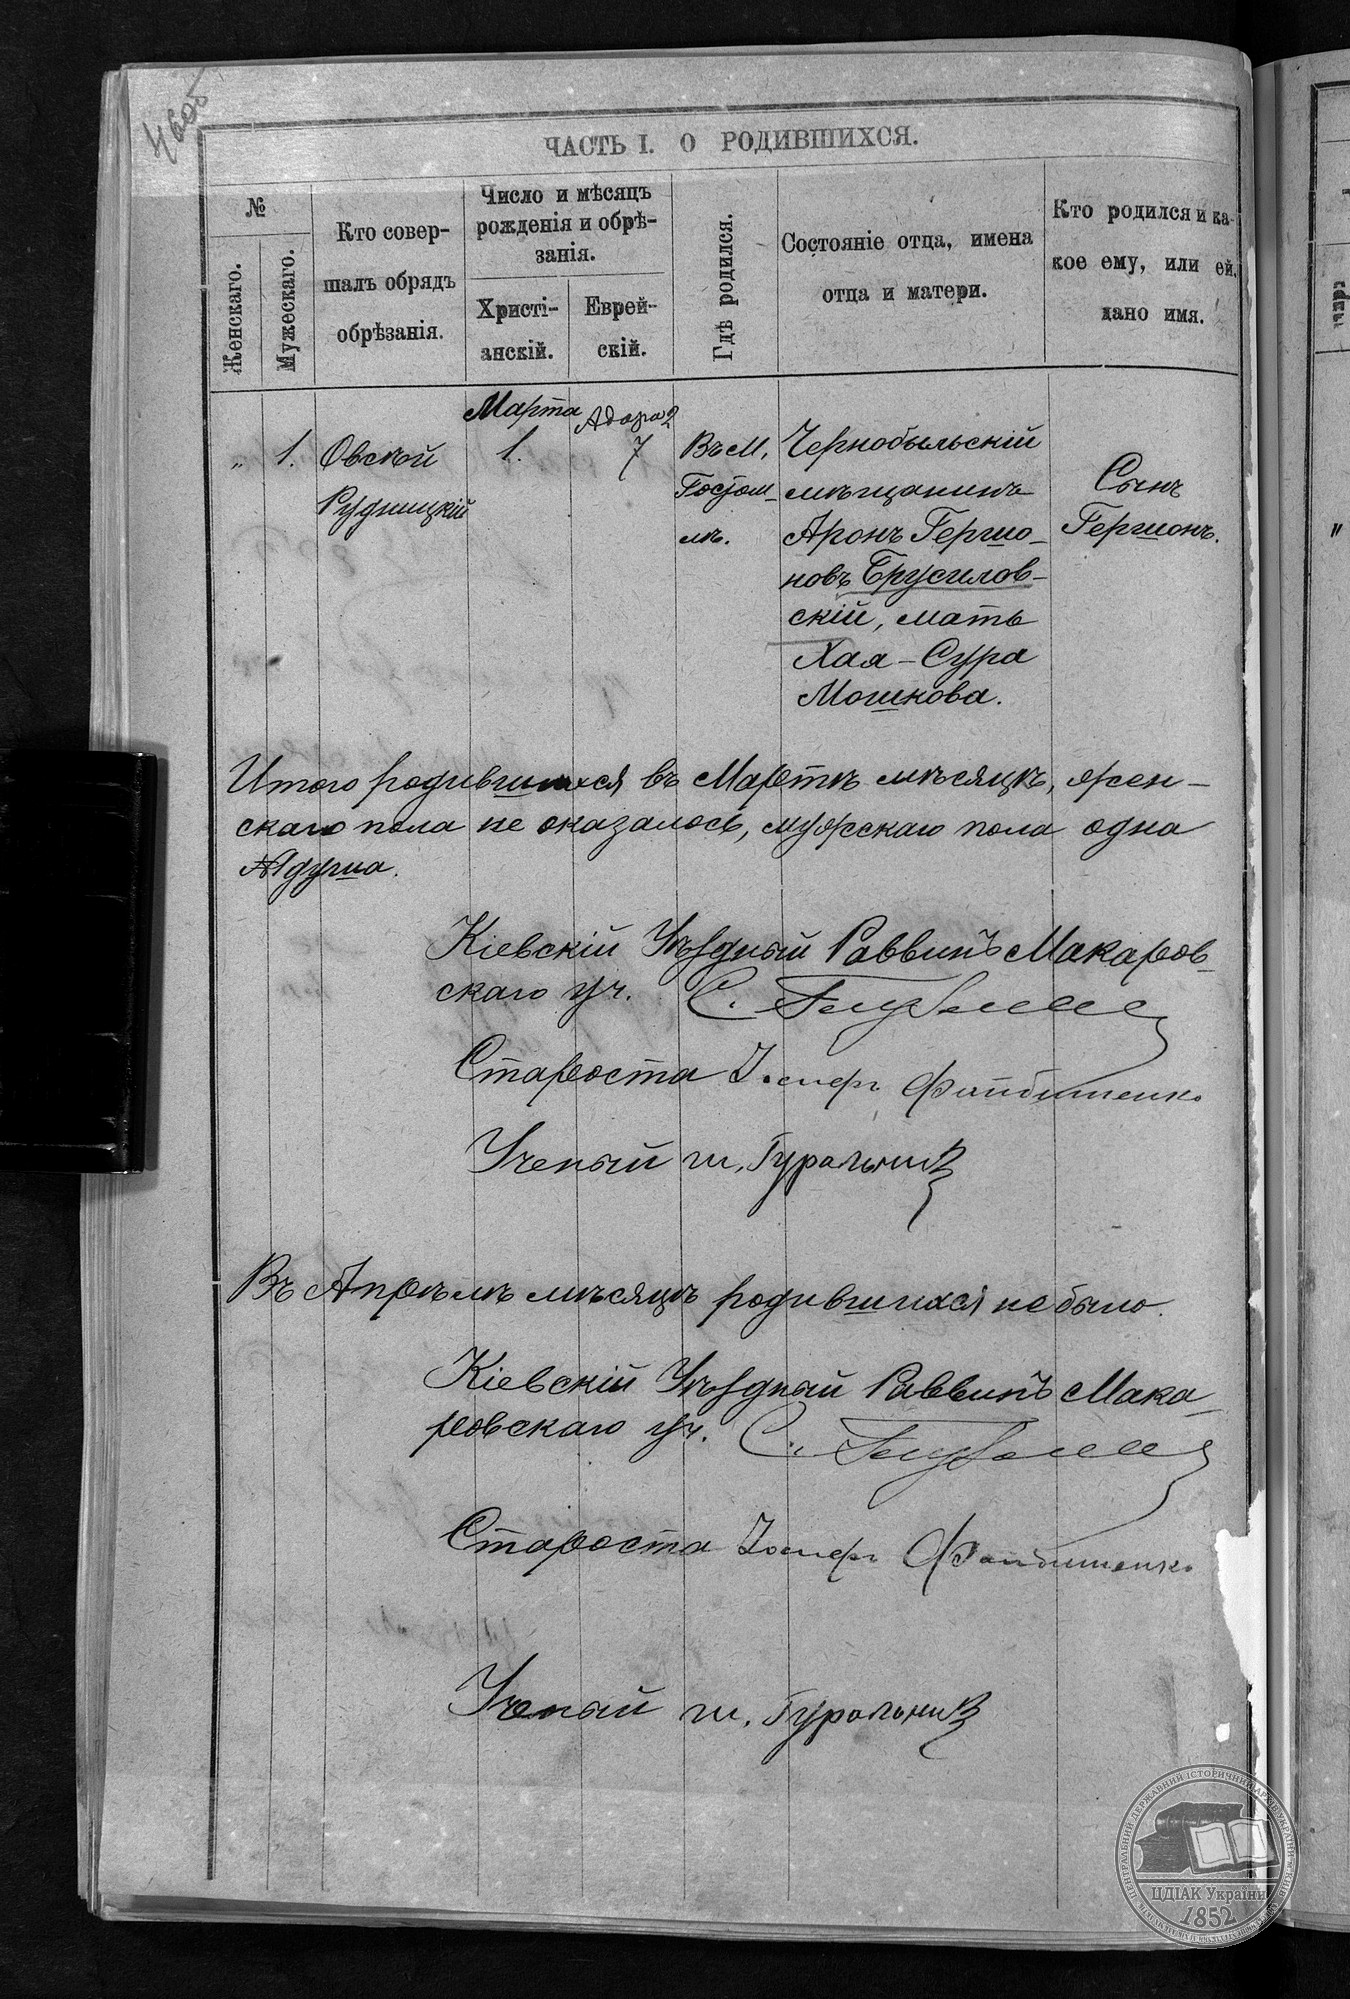 460об
ЧАСТЬ I. О РОДИВШИХСЯ.
№
Женскаго.
Мужескаго.
Кто совер-
шалъ обрядъ
обрѣзанія.
Число и мѣсяцъ
рожденія и обрѣ-
занія.
Христі-
анскій.
Еврей-
скій.
Гдѣ родился.
Состояніе отца, имена
отца и матери.
Кто родился и ка-
кое ему, или ей,
дано имя.
„ 1.
Овсѣй
Рудницкій
Марта
1.
Адара 2
7
Въ м.
Гостом-
лѣ.
Чернобыльскій
мѣщанинъ
Аронъ Гершо-
новъ Брусилов-
скій, мать
Хая-Сура
Мошкова.
Сынъ
Гершонъ.
Итого родившихся въ Мартѣ мѣсяцѣ, жен-
скаго пола не оказалось, мужскаго пола одна
душа.
Кіевскій Уѣздный Раввинъ Макаров-
скаго уч. С.
Староста Іосифъ Файбишенко
Ученый Ш. Гуральник
Въ Апрѣлѣ мѣсяцѣ родившихся не было.
Кіевскій Уѣздный Раввинъ Мака-
ровскаго уч. С.
Староста Іосифъ Файбишенко
Ученый Ш. Гуральник
ЦЕНТРАЛЬНИЙ ДЕРЖАВНИЙ ІСТОРИЧНИЙ АРХІВ УКРАЇНИ, м. КИЇВ
ЦДІАК України
1852